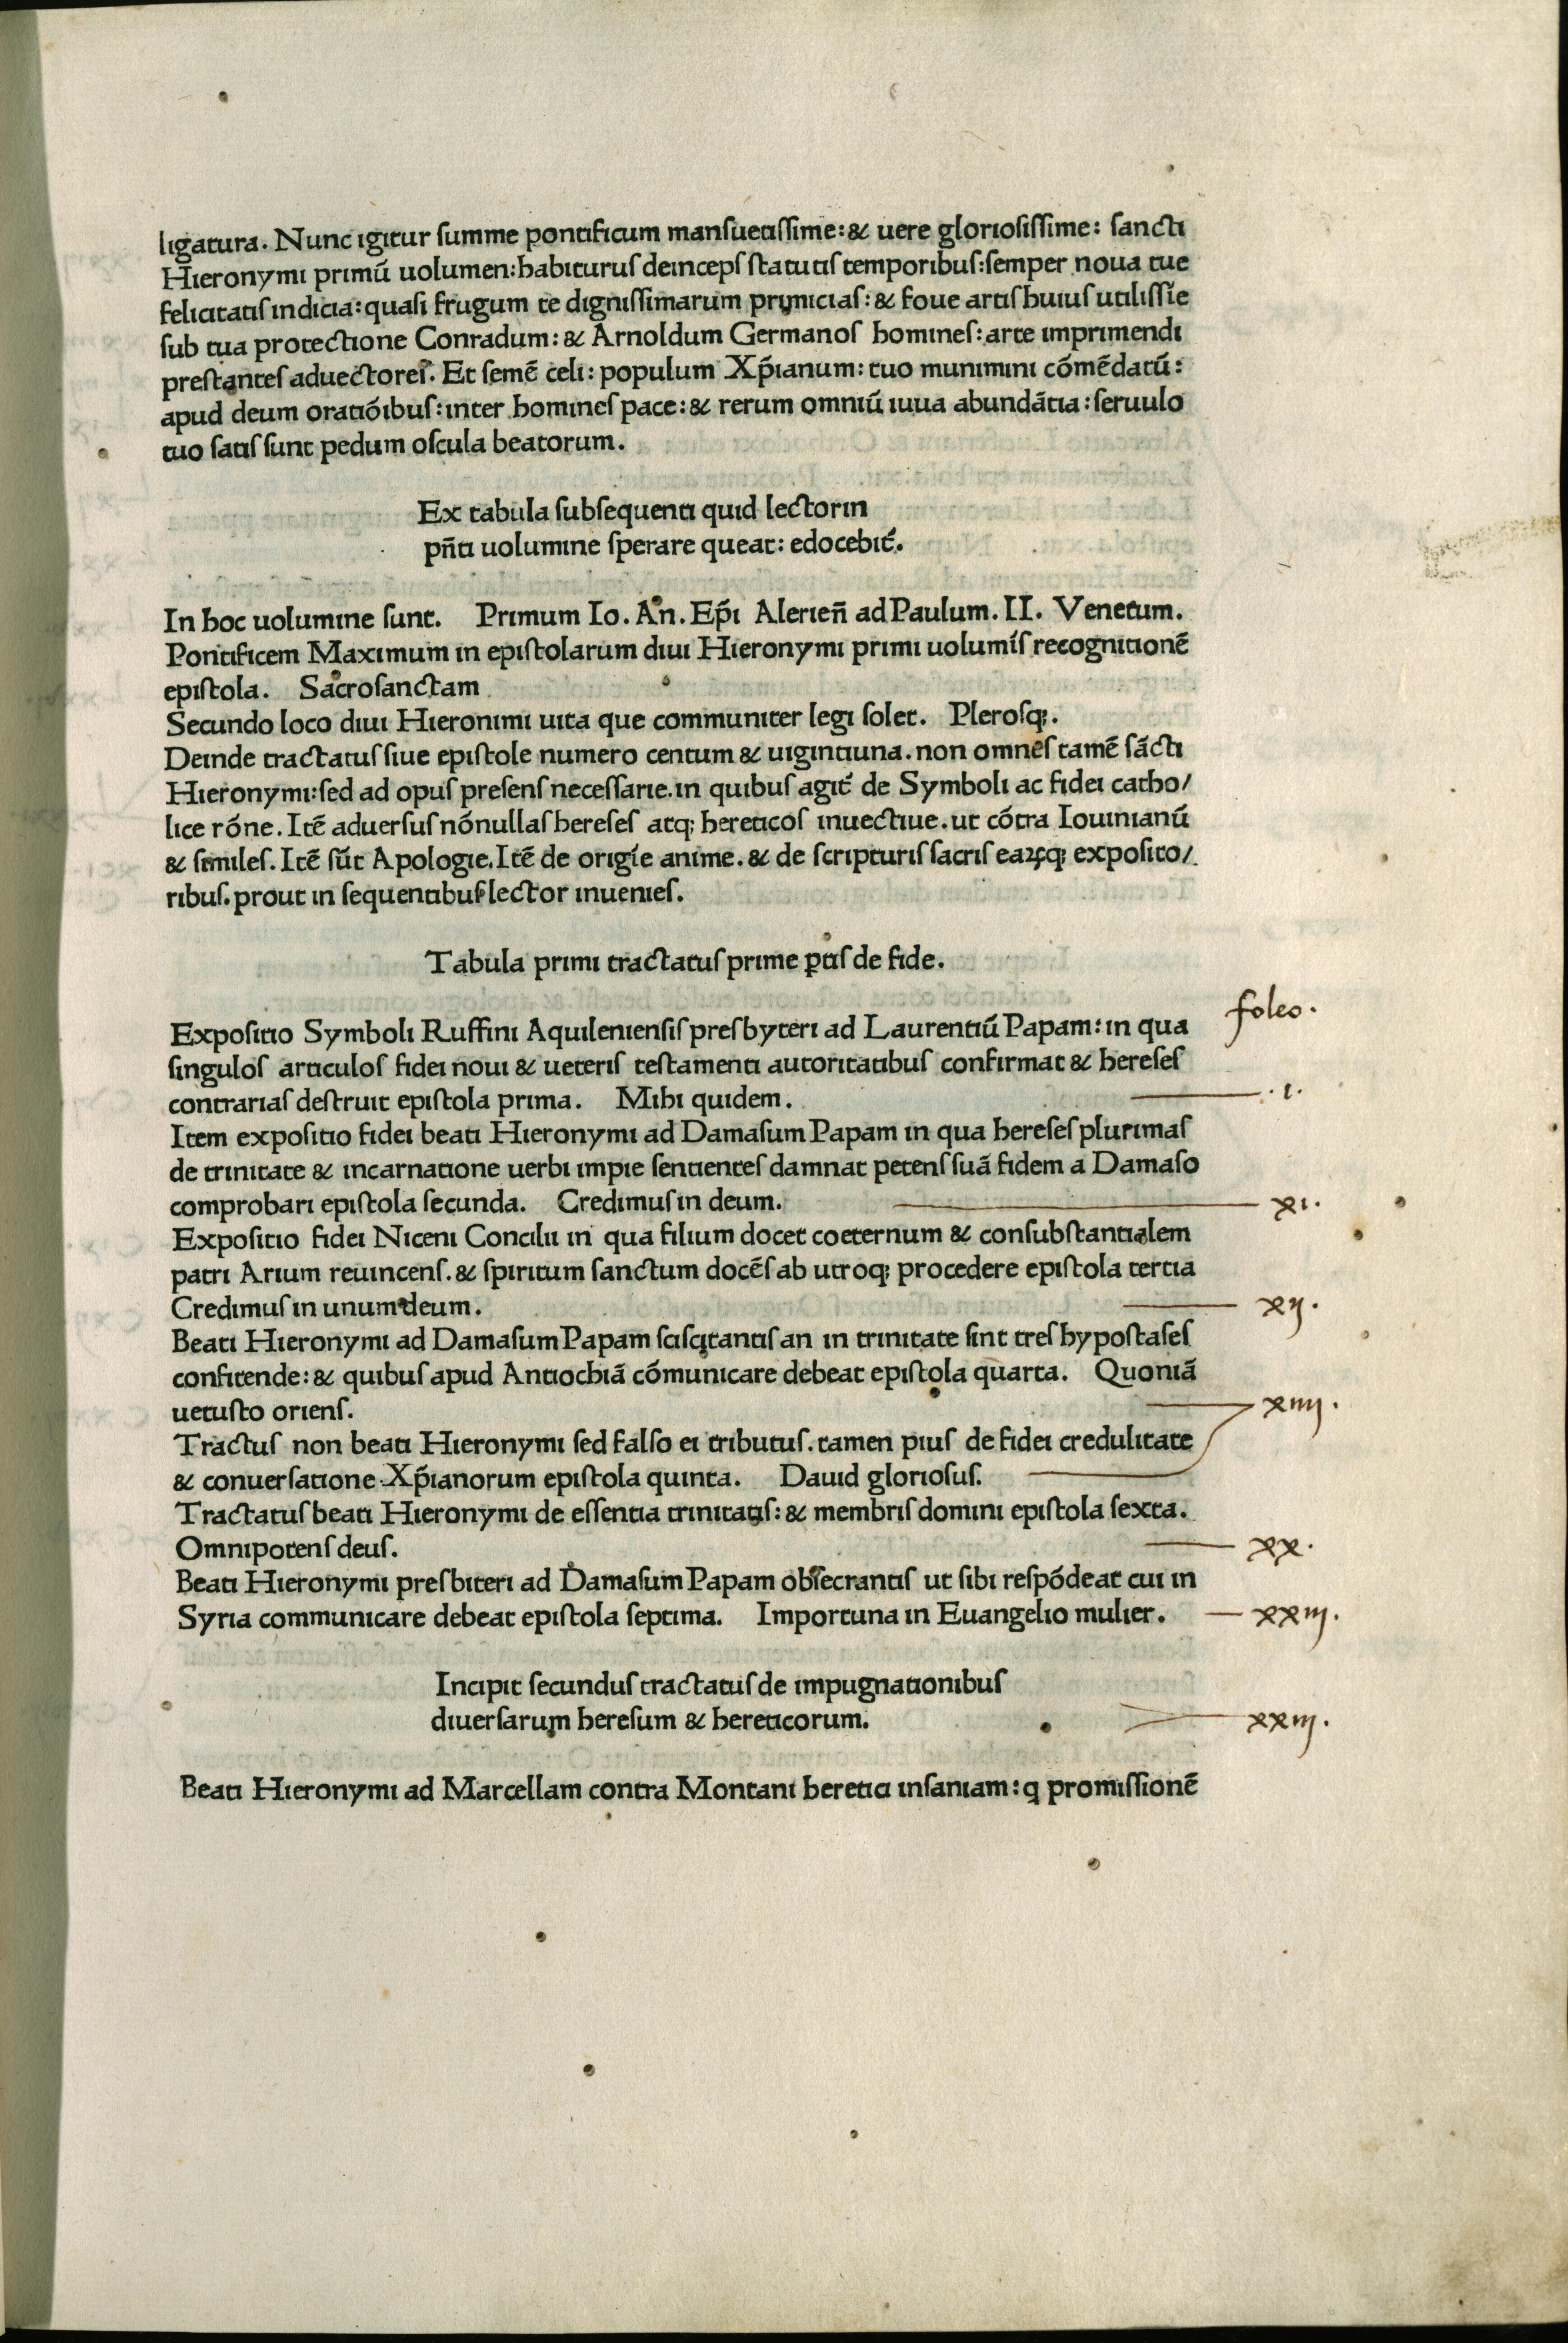 ligatura. Nunc igitur summe pontificum mansuetissime: & uere gloriosissime: sancti
Hieronymi primū uolumen: habiturus deinceps statutis temporibus: semper noua tue
felicitatis indicia: quasi frugum te dignissimarum primicias: & foue artis huius utilissīe
sub tua protectione Conradum: & Arnoldum Germanos homines: arte imprimendi
prestantes aduectores. Et semē celi: populum Xp̄ianum: tuo munimini cōmēdatū:
apud deum oratiōibus: inter homines pace: & rerum omniū iuua abundātia: seruulo
tuo satis sunt pedum oscula beatorum.
Ex tabula subsequenti quid lector in
pn̄ti uolumine sperare queat: edocebit᷑.
In hoc uolumine sunt. Primum Io. An. Ep̄i Alerien̄ ad Paulum. II. Venetum.
Pontificem Maximum in epistolarum diui Hieronymi primi uolumīs recognitionē
epistola. Sacrosanctam
Secundo loco diui Hieronimi uita que communiter legi solet. Plerosq;.
Deinde tractatus siue epistole numero centum & uigintiuna. non omnes tamē sācti
Hieronymi: sed ad opus presens necessarie. in quibus agit᷑ de Symboli ac fidei catho/
lice rōne. Itē aduersus nōnullas hereses atq; hereticos inuectiue. ut cōtra Iouinianū
& similes. Itē sūt Apologie. Itē de origīe anime. & de scripturis sacris eaꝝq; exposito/
ribus. prout in sequentibus lector inuenies.
Tabula primi tractatus prime ꝑtis de fide.
foleo.
Expositio Symboli Ruffini Aquileniensis presbyteri ad Laurentiū Papam: in qua
singulos articulos fidei noui & ueteris testamenti autoritatibus confirmat & hereses
contrarias destruit epistola prima. Mihi quidem. .i.
Item expositio fidei beati Hieronymi ad Damasum Papam in qua hereses plurimas
de trinitate & incarnatione uerbi impie sentientes damnat petens suā fidem a Damaso
comprobari epistola secunda. Credimus in deum. xi.
Expositio fidei Niceni Concilii in qua filium docet coeternum & consubstantialem
patri Arium reuincens. & spiritum sanctum docēs ab utroq; procedere epistola tertia
Credimus in unum deum. xij.
Beati Hieronymi ad Damasum Papam sciscitantis an in trinitate sint tres hypostases
confitende: & quibus apud Antiochiā cōmunicare debeat epistola quarta. Quoniā
uetusto oriens. xiiij.
Tractus non beati Hieronymi sed falso ei tributus. tamen pius de fidei credulitate
& conuersatione Xp̄ianorum epistola quinta. Dauid gloriosus.
Tractatus beati Hieronymi de essentia trinitatis: & membris domini epistola sexta.
Omnipotens deus. xx.
Beati Hieronymi presbiteri ad Damasum Papam obsecrantis ut sibi respōdeat cui in
Syria communicare debeat epistola septima. Importuna in Euangelio mulier. xxiij.
Incipit secundus tractatus de impugnationibus
diuersarum heresum & hereticorum. xxiij.
Beati Hieronymi ad Marcellam contra Montani heretici insaniam: ꝗ promissionē